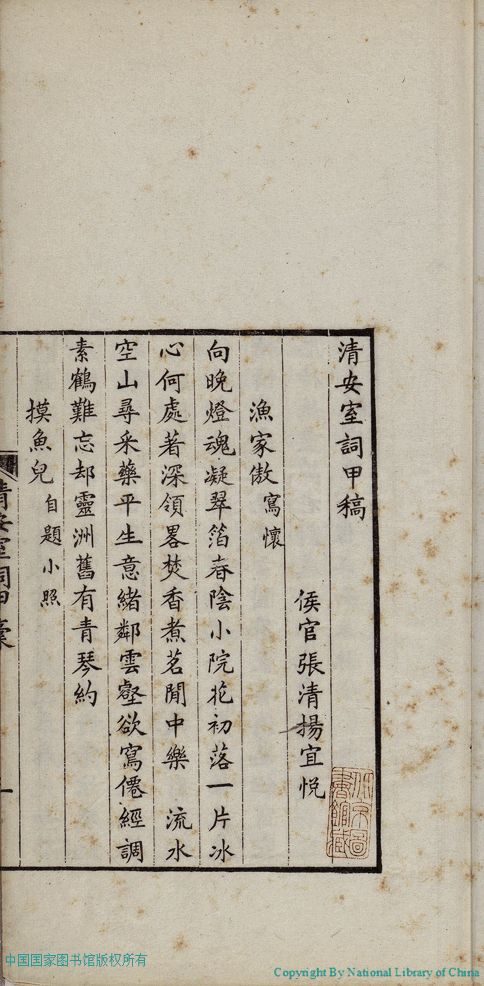 清安室詞甲稿
侯官張清揚宜悅
漁家傲寫懷
向晚燈魂凝翠箔春陰小院花初落一片冰
心何處著深領畧焚香煮茗閒中樂　流水
空山尋采藥平生意緒鄰雲壑欲寫僊經調
素鶴難忘却靈洲舊有青琴約
摸魚兒自題小照
清安室詞甲稾
一
中国国家图书馆版权所有
Copyright By National Library of China